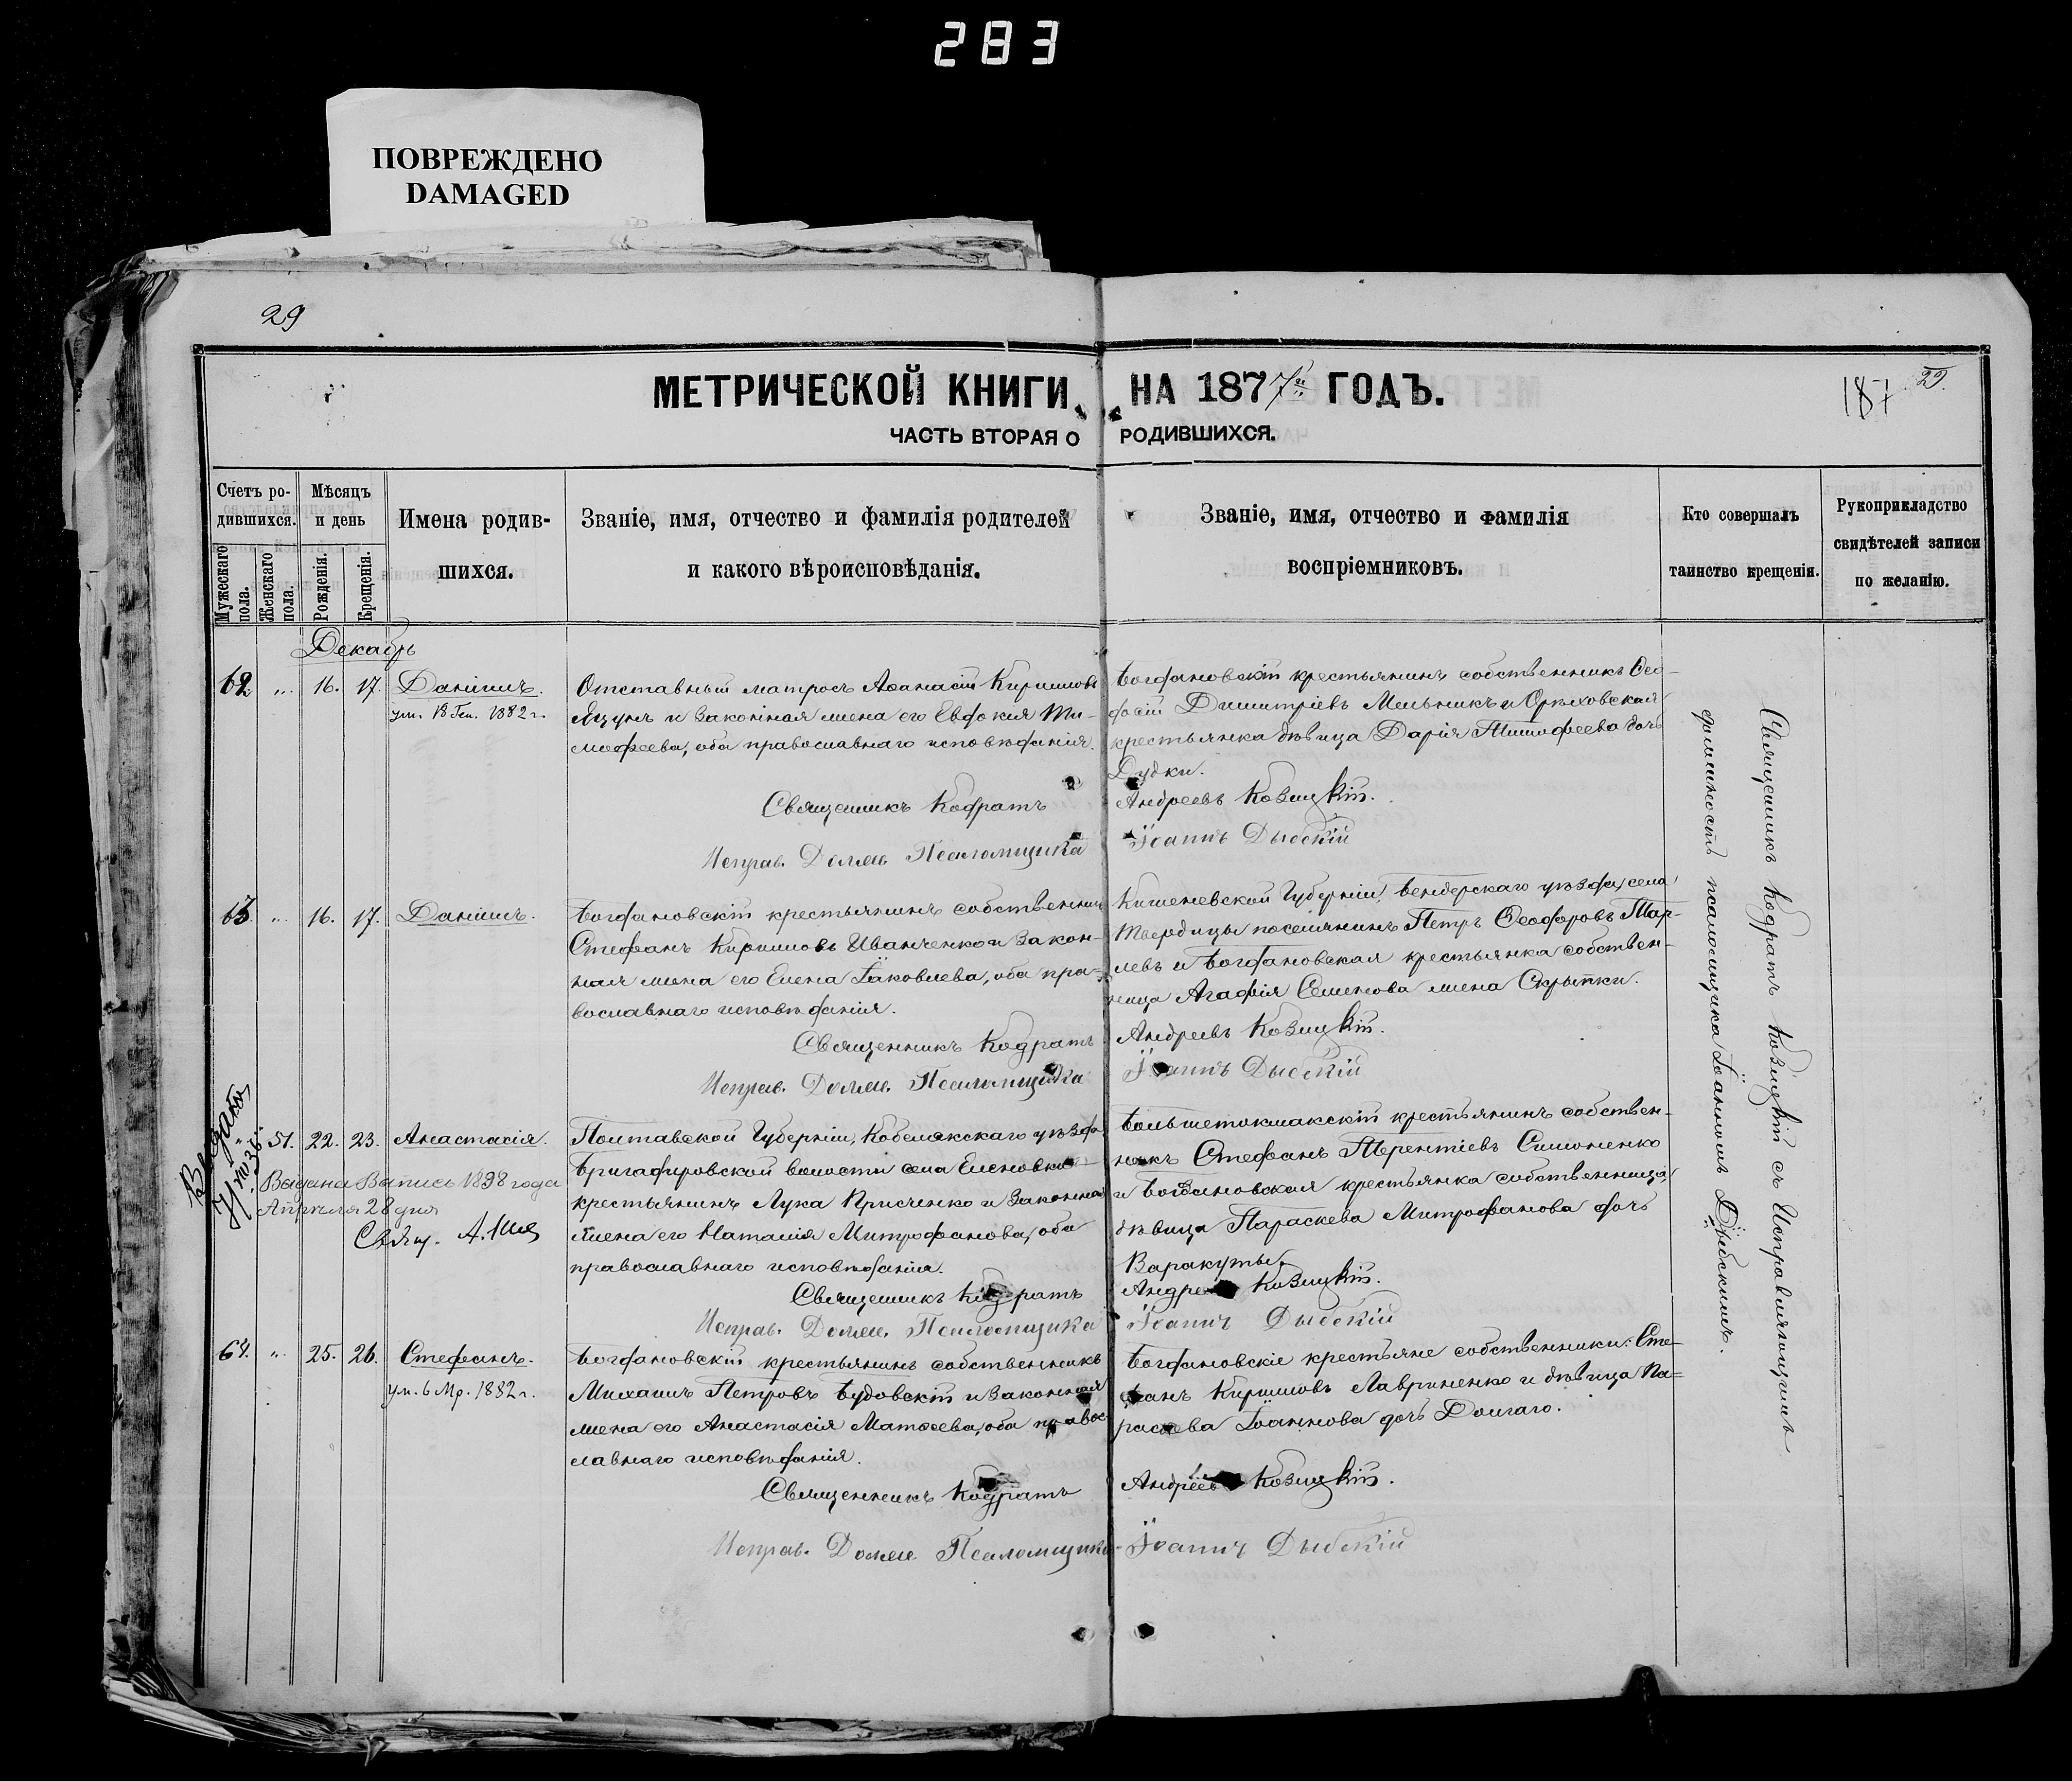 283
ПОВРЕЖДЕНО
DAMAGED
29
МЕТРИЧЕСКОЙ КНИГИ НА 1877 ГОДЪ.
187 29.
ЧАСТЬ ВТОРАЯ О РОДИВШИХСЯ.
Счетъ родившихся.
Мужескаго пола.
Женскаго пола.
Мѣсяцъ и день
Рожденія.
Крещенія.
Имена родившихся.
Званіе, имя, отчество и фамилія родителей
и какого вѣроисповѣданія.
Званіе, имя, отчество и фамилія
воспріемниковъ.
Кто совершалъ
таинство крещенія.
Рукоприкладство
свидѣтелей записи
по желанію.
Декабрь
62. „ 16. 17. Даніилъ.
ум. 18 Ген. 1882 г.
Отставный матросъ Аѳанасій Кирилловъ
Яцунъ и законная жена его Евдокия Ти-
мофеева, оба православнаго исповѣданія.
Богдановскій крестьянинъ собственникъ Ѳео-
досій Димитріевъ Мельникъ и Орѣховская
крестьянка дѣвица Дарія Тимофеева дочь
Дудки.
Священникъ Кодратъ Андреевъ Козицкій.
Исправ. Долж. Псаломщика Іоаннъ Дыбскій
63. „ 16. 17. Даніилъ.
Богдановскій крестьянинъ собственник
Стефанъ Кирилловъ Иванченко и закон-
ная жена его Елена Іаковлева, оба пра-
вославнаго исповѣданія.
Кишеневской Губерніи, Бендерскаго уѣзда, села
Твердицы поселянинъ Петръ Ѳеодоровъ Тар-
левъ и Богдановская крестьянка собствен-
ница Агафія Семенова жена Скрыпки.
Священникъ Кодратъ Андреевъ Козицкій.
Исправ. Долж. Псаломщика Іоаннъ Дыбскій
„ 51. 22. 23. Анастасія.
Выдана Запись 1898 года
Апрѣля 28 дня
Свящ.
Полтавской Губерніи, Кобелякскаго уѣзда
Бригадировской волости села Еленовки
крестьянинъ Лука Присченко и законная
жена его Наталія Митрофанова, оба
православнаго исповѣданія.
Большетокмакскій крестьянинъ собствен-
никъ Стефанъ Терентіевъ Симоненко
и Богдановская крестьянка собственница,
дѣвица Параскева Митрофанова дочь
Варакуты.
Священникъ Кодратъ Андреевъ Козицкій.
Исправ. Долж. Псаломщика Іоаннъ Дыбскій
64. „ 25. 26. Стефанъ.
ум. 6 Мр. 1882 г.
Богдановскій крестьянинъ собственникъ
Михаилъ Петровъ Будовскій и законная
жена его Анастасія Матѳеева, оба правос
лавнаго исповѣданія.
Богдановскіе крестьяне собственники: Сте-
фанъ Кирилловъ Лавриненко и дѣвица Па-
раскева Іоаннова дочь Долгаго.
Священникъ Кодратъ Андреевъ Козицкій.
Исправ. Долж. Псаломщика Іоаннъ Дыбскій
Священникъ Кодратъ Козицкій съ Исправляющимъ
должность псаломщика Іоанномъ Дыбскимъ.